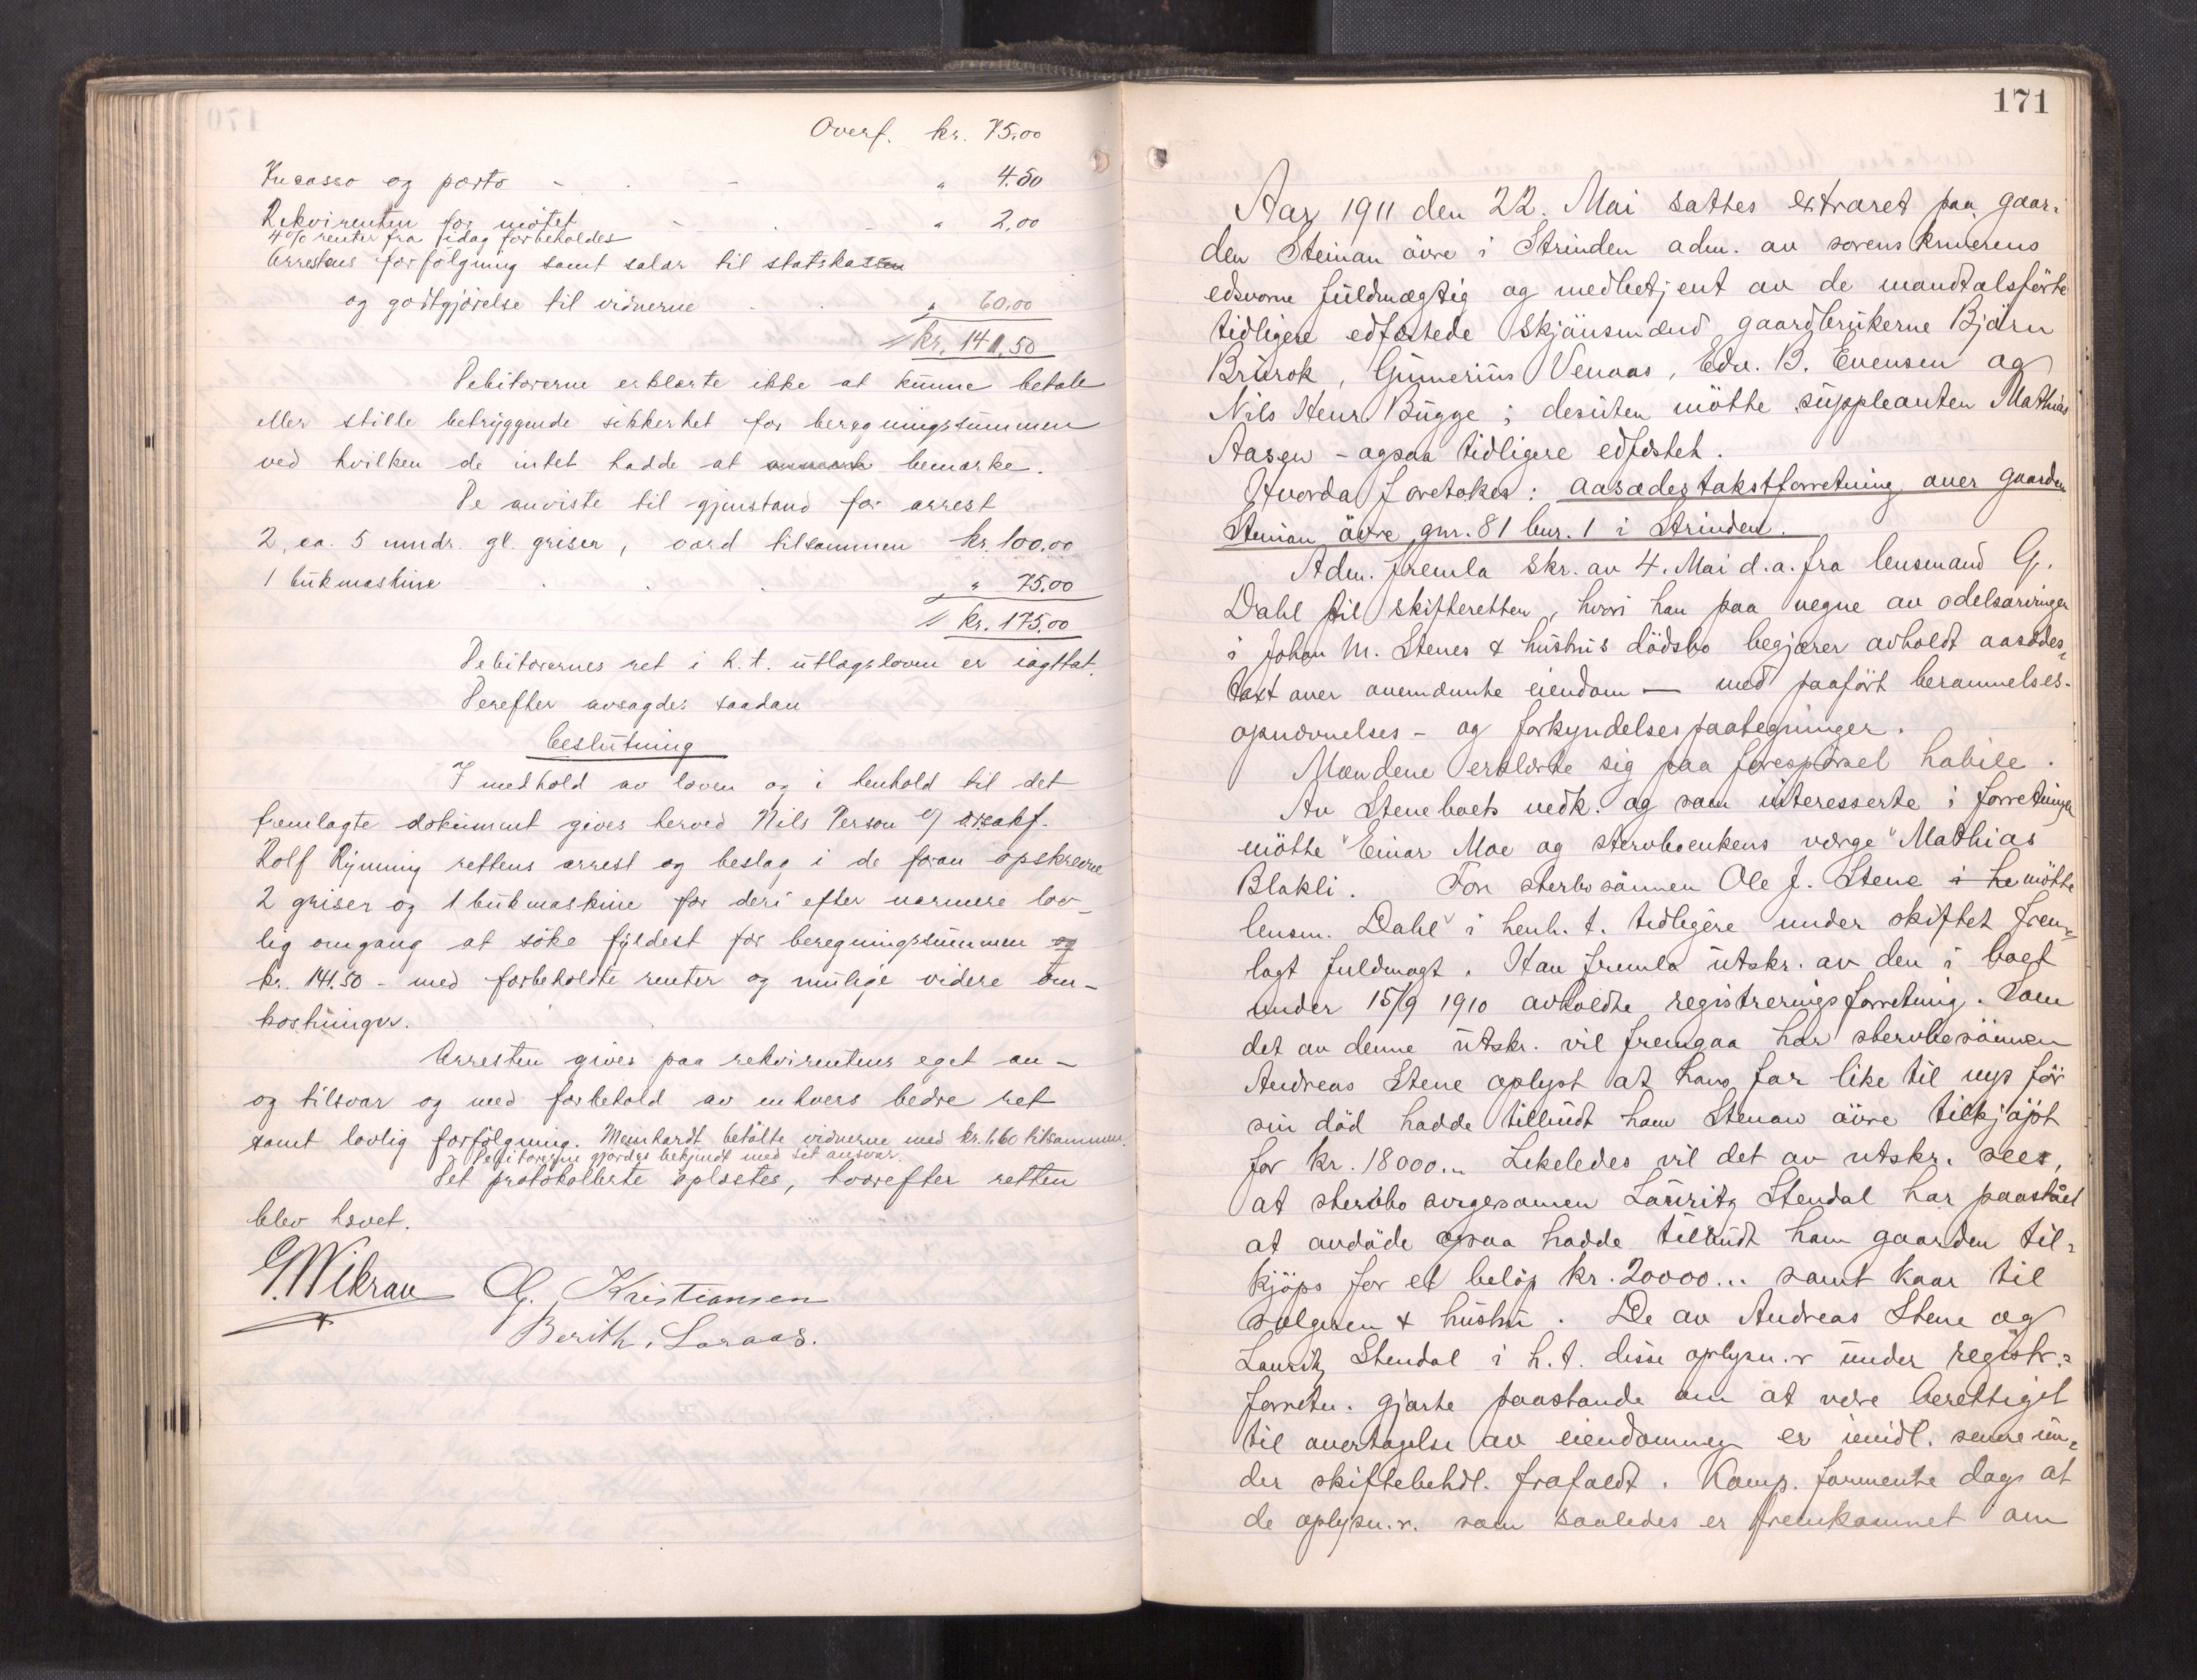 Overf. kr. 75.00
Incasso og porto - . - " 4.50
Rekvirenten for mötet - . - " 2.00
4% renter fra idag forbeholdes
Arrestens forfölgning samt salær til statskassen
og godtgjörelse til vidnerne . . " 60.00
kr. 141.50
Debitorerne erklærte ikke at kunne betale
eller stille betryggende sikkerhet for beregningssummen
ved hvilken de intet hadde at bemærke.
De anviste til gjenstand for arrest
2, ca. 5 mndr. gl. griser, værd tilsammen kr. 100.00
1 bukmaskine . . . " 75.00
kr. 175.00
Debitorernes ret i h.t. utlægsloven er iagttat.
Derefter avsagdes saadan
beslutning
I medhold av loven og i henhold til det
fremlagte dokument gives herved Nils Person v/ o.r.sakf.
Rolf Rynning rettens arrest og beslag i de foran opskrevne
2 griser og 1 bukmaskine for deri efter nærmere lov-
lig omgang at söke fyldest for beregningssummen og
kr. 141.50 - med forbeholdte renter og mulige videre om-
kostninger.
Arresten gives paa rekvirentens eget an-
og tilsvar og med forbehold av enhvers bedre ret
samt lovlig forfölgning. Meinhardt betalte vidnerne med kr. 1.60 tilsammen.
Debitorerne gjordes bekjendt med sit ansvar.
Det protokollerte oplæstes, hvorefter retten
blev hævet.
G. Wikran O. G. Kristiansen
Berith. Loraas.
171
Aar 1911 den 22. Mai sattes extraret paa gaar-
den Steinan övre i Strinden adm. av sorenskriverens
edsvorne fuldmægtig og medbetjent av de mandtalsförte
tidligere edfæstede skjönsmænd gaardbrukerne Björn
Brurok, Gunerius Venaas, Edv. B. Evensen og
Nils Henr. Bugge; desuten mötte suppleanten Mathias
Aasen - ogsaa tidligere edfæstet.
Hvorda foretokes: aasædestakstforretning over gaarden
Steinan övre gnr. 81 bnr. 1 i Strinden.
Adm. fremla skr. av 4. Mai d.a. fra lensmand G.
Dahl til skifteretten, hvori han paa vegne av odelsarvinger
i Johan M. Stenes & hustrus dödsbo begjærer avholdt aasædes-
takst over ovennævnte eiendom — med paafört berammelses-
opnævnelses - og forkyndelsespaategninger.
Mændene erklærte sig paa forespörsel habile.
Av Steneboets vedk. og som interesserte i forretningen
mötte Einar Moe og stervboenkens værge Mathias
Blakli. For sterbosönnen Ole J. Stene i he mötte
lensm. Dahl i henh. t. tidligere under skiftet frem-
lagt fuldmagt. Han fremla utskr. av den i boet
under 15/9 1910 avholdte registreringsforretning. Som
det av denne utskr. vil fremgaa har stervbosönnen
Andreas Stene oplyst at hans far like til nys för
sin död hadde tilbudt ham Stenan övre tilkjöpt
for kr. 18000.- Likeledes vil det av utskr. sees,
at stervbosvigersönnen Lauritz Stendal har paastået
at avdöde ogsaa hadde tilbudt ham gaarden til-
kjöps for et belöp kr. 20000... samt kaar til
sælgeren & hustru. De av Andreas Stene og
Lauritz Stendal i h.t. disse oplysn.r under registr.-
forretn. gjorte paastande om at være berettiget
til overtagelse av eiendommen er imidl. senere un-
der skiftebehdl. frafaldt. Komp. formente dog at
de oplysn.r. som saaledes er fremkommet om